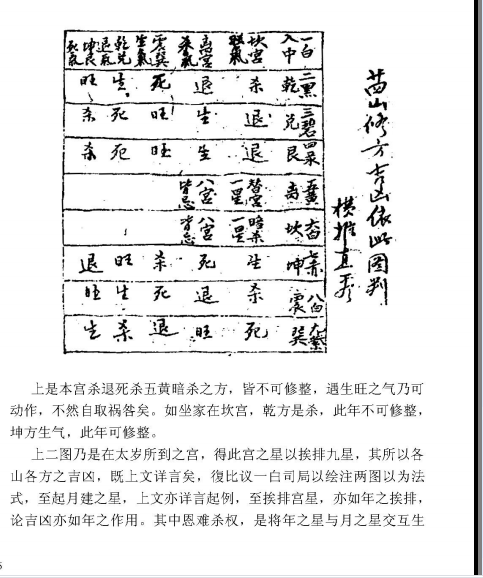 山修方吉凶依此图判
横推直看
一白入中 坎宫 离宫杀氣 震巽生氣 乾兑退氣 坤艮死氣
二黑乾 杀 退 死 生 旺
三碧兑 退 生 旺 死 杀
四录艮 退 生 旺 死 杀
五黄离 替宫一星 八宫皆忌
六白坎 暗杀一星 八宫皆忌
七赤坤 生 死 杀 旺 退
八白震 杀 退 死 生 旺
九紫巽 死 旺 退 杀 生
上是本宫杀退死杀五黄暗杀之方，皆不可修整，遇生旺之气乃可
动作，不然自取祸咎矣。如坐家在坎宫，乾方是杀，此年不可修整，
坤方生气，此年可修整。
上二图乃是在太岁所到之宫，得此宫之星以挨排九星，其所以各
山各方之吉凶，既上文详言矣，復比议一白司局以绘注两图以为法
式，至起月建之星，上文亦详言起例，至挨排宫星，亦如年之挨排，
论吉凶亦如年之作用。其中恩难杀权，是将年之星与月之星交互生